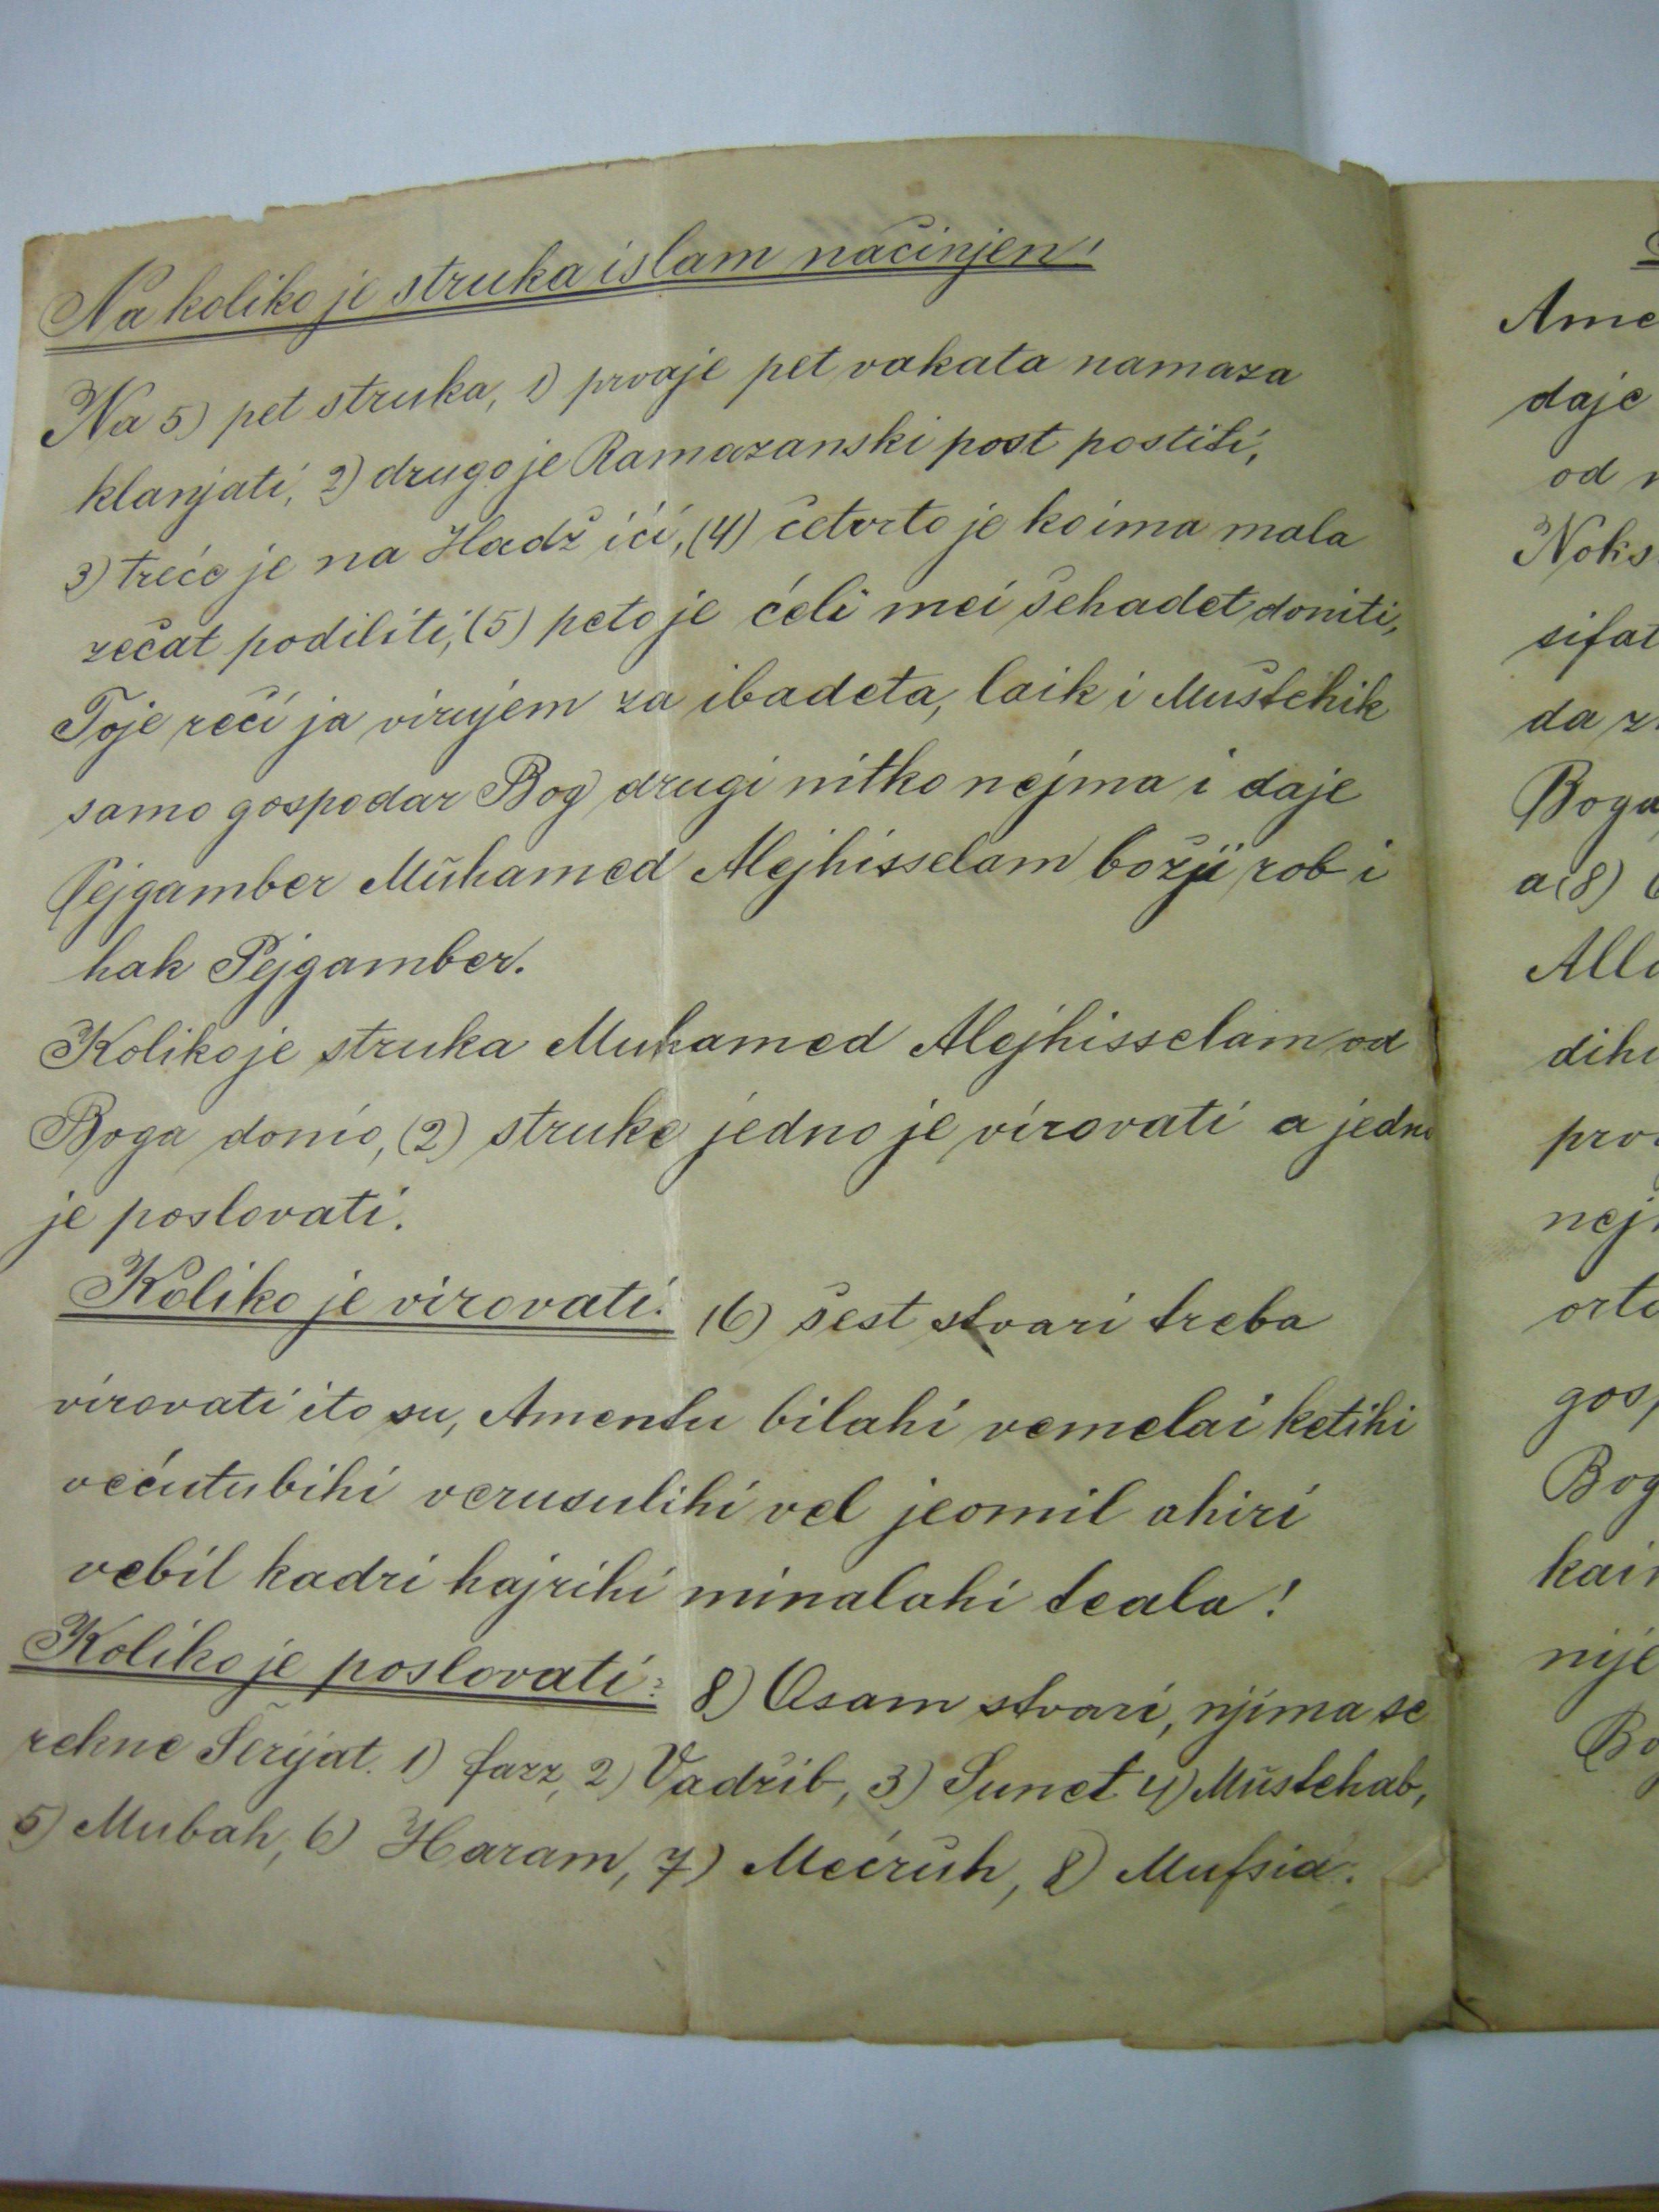 Na koliko je struka islam načinjen!
Na 5) pet struka, 1) prvaje pet vakata namaza
klanjati, 2) drugoje Ramazanski post postiti,
3) treće je na Hadž ići, (4) četvrto je ko ima mala
zečat podiliti, (5) peto je ćeli mei šehadet doniti,
Toje reći ja virujem za ibadeta, laik i Mustehik
samo gospodar Bog drugi nitko nejma i daje
Pejgamber Muhamed Alejhisselam božji rob i
hak Pejgamber.
Koliko je struka Muhamed Alejhisselam od
Boga donio, (2) struke jedno je virovati a jedno
je poslovati.
Koliko je virovati. (6) šest stvari treba
virovati ito su, Amentu bilahi vemelai ketihi
većutubihi verusulihi vel jeomil ahiri
vebil kadri hajrihi minalahi teala!
Koliko je poslovati: 8) Osam stvari, njima se
rekne Šerijat. 1) farz, 2) Vadžib, 3) Sunet 4) Mustehab,
5) Mubah, 6) Haram, 7) Mećruh, 8) Mufsid.
Ame
daje
od
Noks
sifat
da
Boga
a (8)